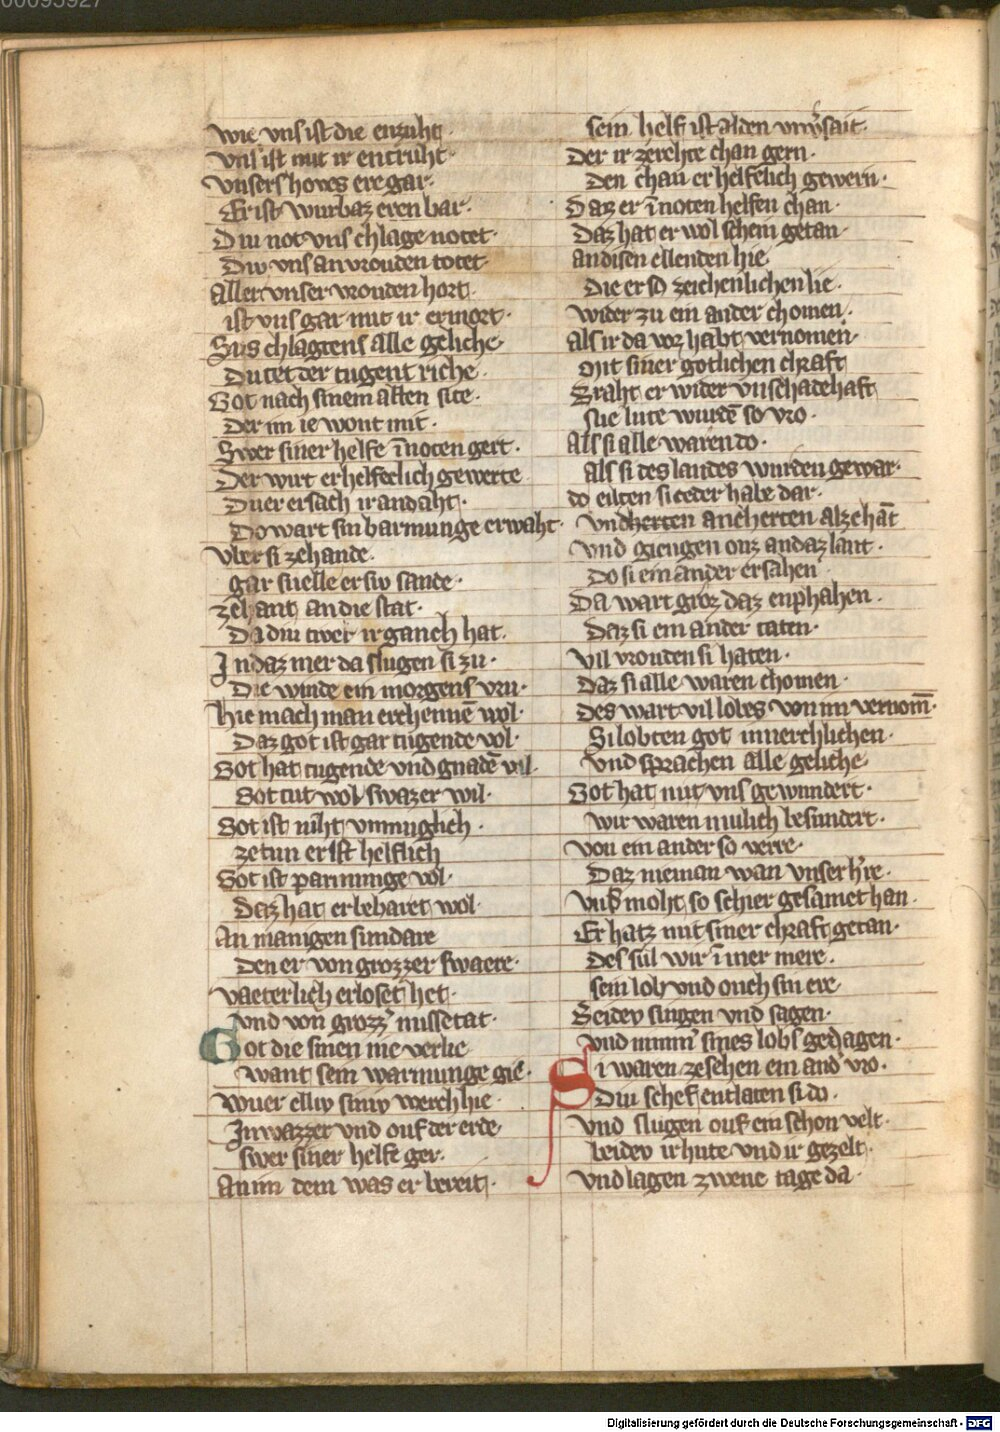 00095927
wie vns ist die enzuht·
vns ist mit ir entruht·
vnsers howes ere gar·
Er ist wurbaz eren bar·
Diu not vns chlage notet·
Div vns an vrouden totet·
Aller vnser vrouden hort·
ist vns gar mit ir ermort·
Sus chlagtens alle geliche·
Du tet der tugent riche·
Got nach sinem alten site·
Der im ie wont mit·
Swer siner helfe ī noten gert·
Der wirt er helfeclich gewerte
Duer ersach ir andaht·
Do wart sin barmunge erwaht·
vber si zehande·
gar snelle er siv sande·
zehant an die stat·
Da diu twer ir ganch hat·
In daz mer da slugen si zu·
Die winde ein morgens vru·
hie mach man erchennē wol·
Daz got ist gar tugende vol·
Got hat tugende vnd gnadē vil·
Got tut wol swaz er wil·
Got ist niht vnmuglich·
ze tun er ist helflich
Got ist parmunge vol·
Daz hat er bebaret wol·
An manigen sundare
Den er von grozzer swaere·
vaeterlich erloset het·
vnd von grozz᾽ missetat·
Got die sinen nie verlie
want sein warmunge gie·
wuer elliv siniv werch hie·
In wazzer vnd ouf der erde·
swer siner helfe ger·
An im dem was er bereit·
sein helf ist alden vnv᾽sait·
Der ir zerehte chan gern·
Den chan er helfelich gewern·
Daz er ī noten helfen chan·
Daz hat er wol schein getan·
an disen ellenden hie
Die er so zeichenlichen lie·
wider zu ein ander chomen·
Als ir da vor habt vernomen·
mit siner gotlichen chraft
Braht er wider vnschadehaft
Nie lute wurdē so vro·
Als si alle waren do·
Als si des landes wurden gewar·
do eilten si ceder habe dar·
vnd herten ancherten alzehāt
vnd giengen onz an daz lant·
Do si ein ander ersahen
Da wart groz daz enphahen·
Daz si ein ander taten·
vil vrouden si haten·
Daz si alle waren chomen·
Des wart vil lobes von im vernom̄·
Si lobten got innerchlichen·
vnd sprachen alle geliche·
Got hat mit vns gewundert·
wir waren mulich besundert·
von ein ander so verre·
Daz nieman wan vnser h᾽re·
vns moht so schier gesamet han·
Er hatz mit siner chraft getan·
Des sul wir ī mer mere·
sein lob vnd ouch sin ere
Beidev singen vnd sagen·
vnd nimm᾽ sines lobs gedagen·
Si waren zesehen ein and᾽ vro·
Diu schef entlaten si do·
vnd slugen ouf ein schon velt·
beidev ir hute vnd ir gezelt·
vnd lagen zwene tage da·
Digitalisierung gefördert durch die Deutsche Forschungsgemeinschaft - DFG